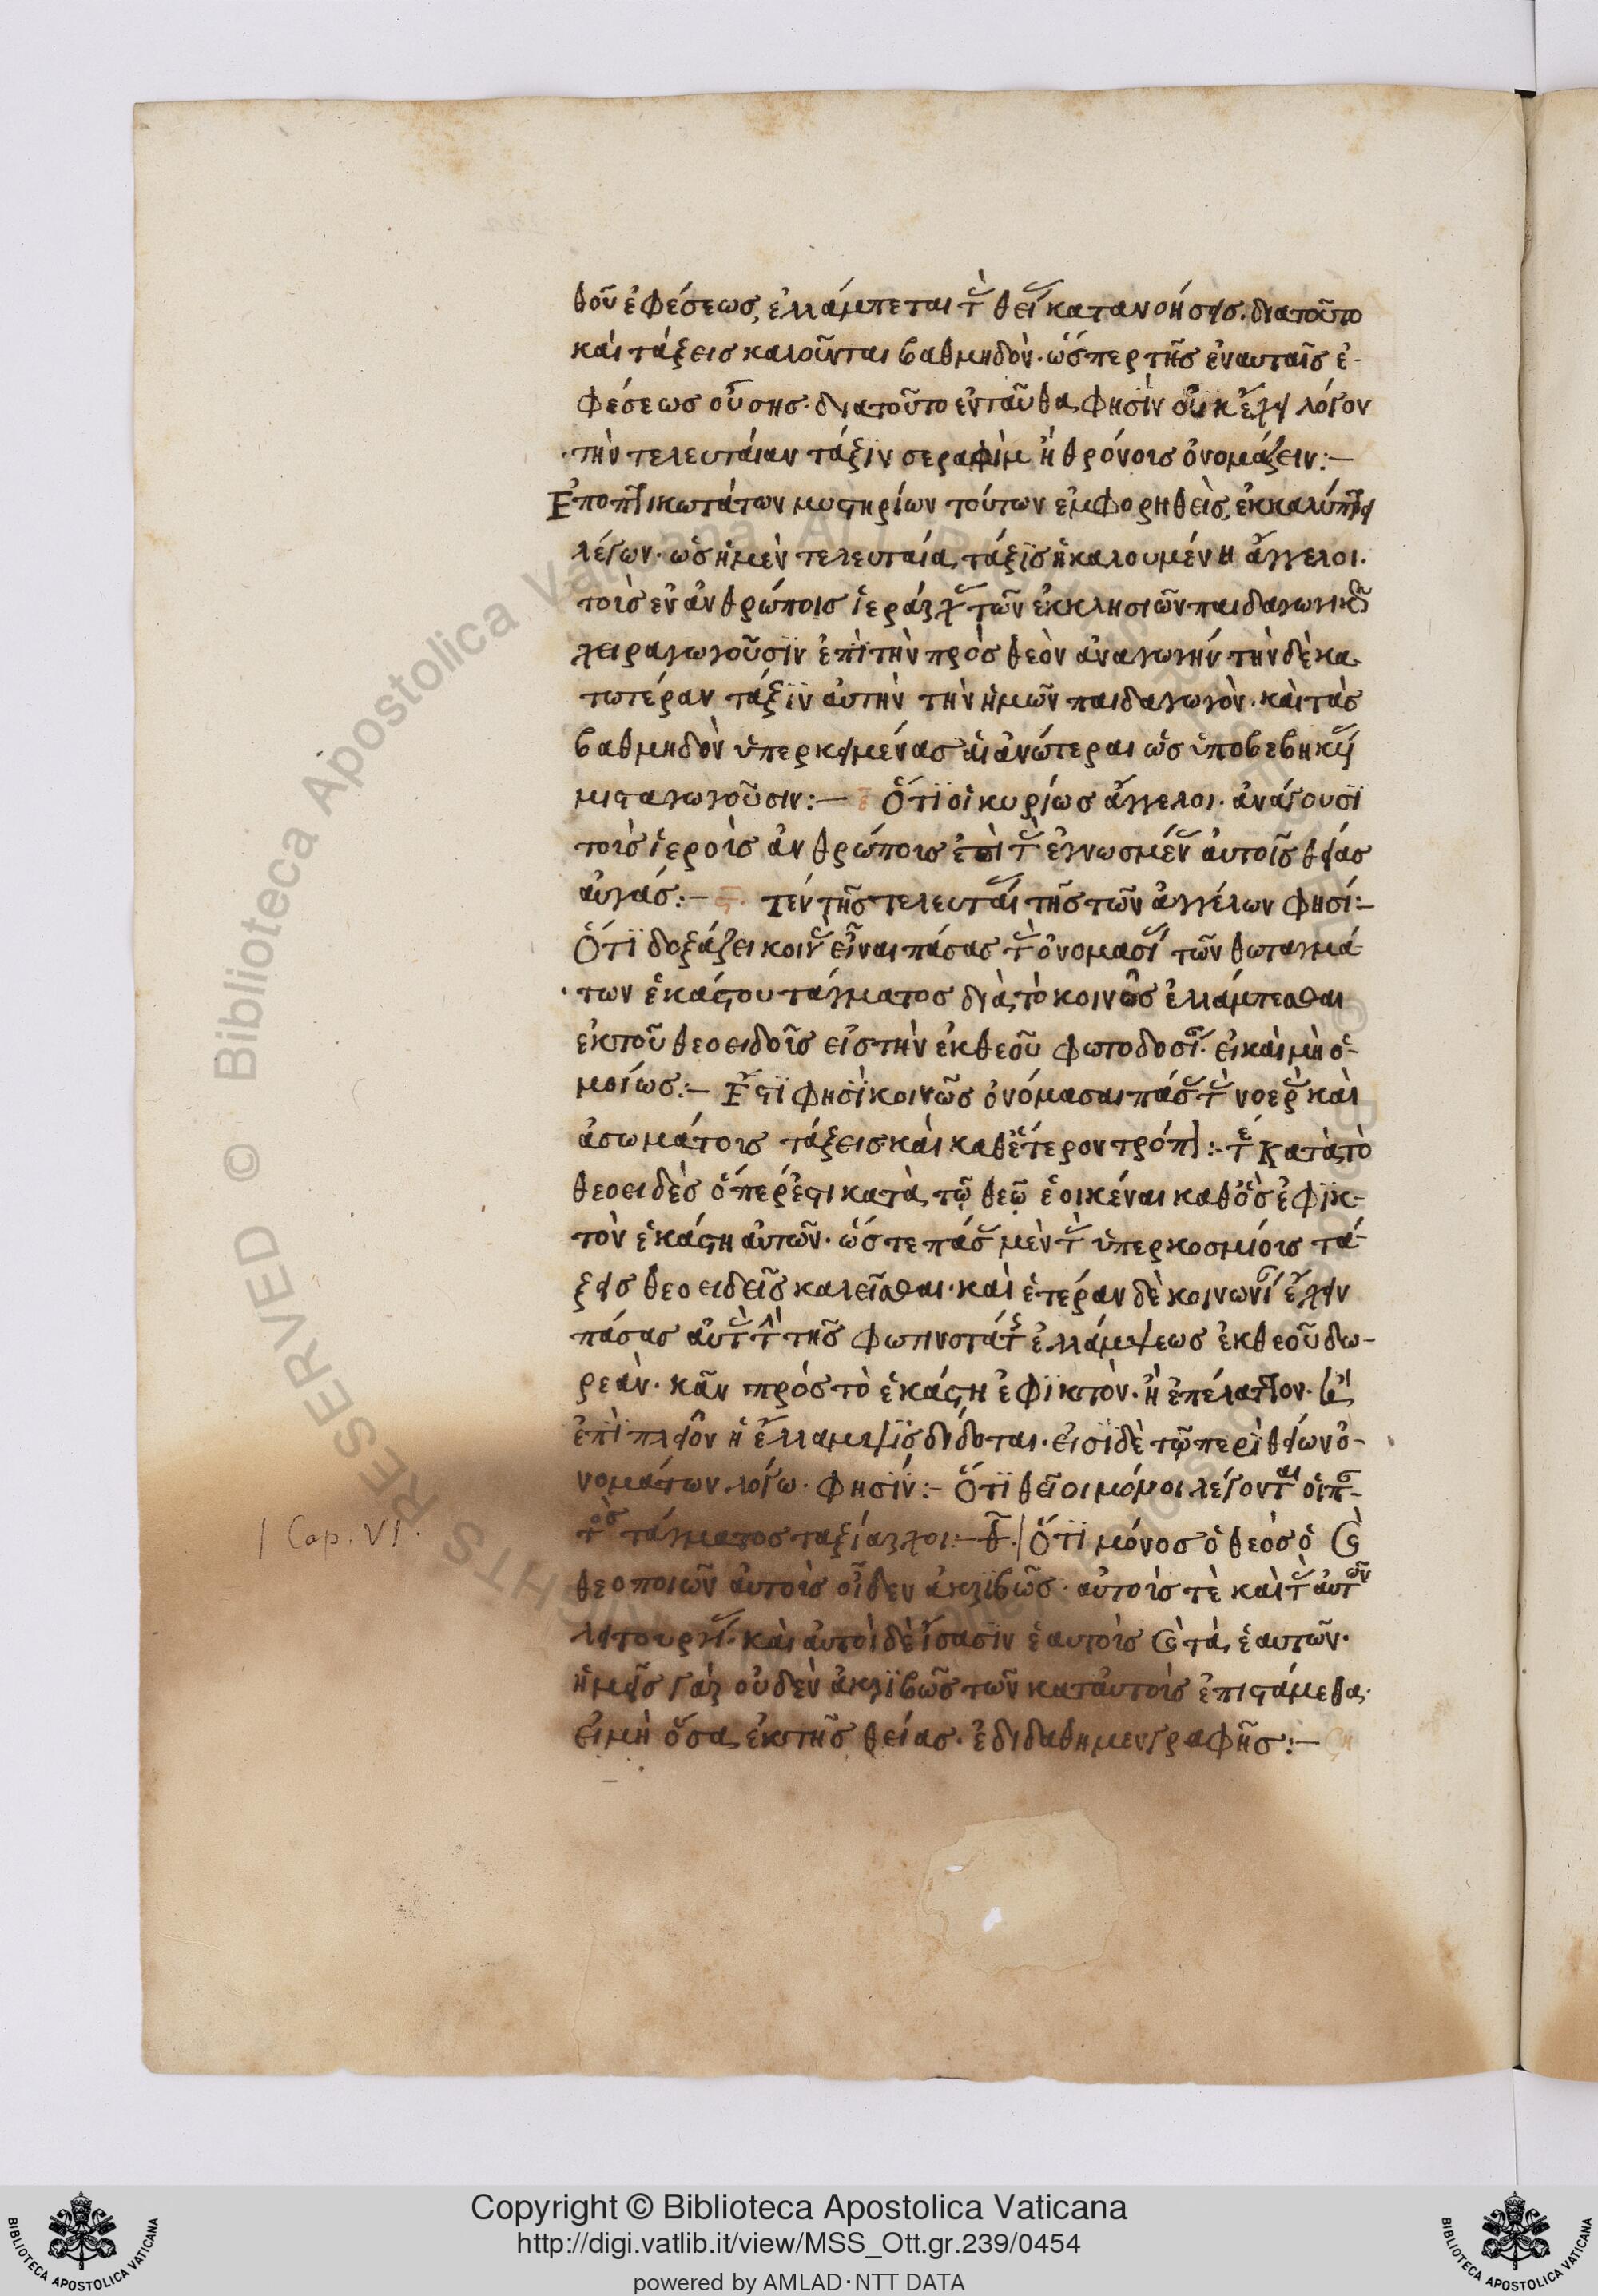 θοῦ ἐφέσεως, ἐλλάμπεται τ θεί κατανοήσεις. διατοῦτο
καὶ τάξεις καλοῦνται βαθμηδὸν. ὥσπερ τῆς ἐναυταῖς ἐ-
φέσεως οὔσης. διατοῦτο ἐνταῦθα φησὶν οὐκ ἔχει λόγον
τὴν τελευταίαν τάξιν σεραφὶμ ἢ θρόνοις ὀνομάζειν:-
Ἐποπτικωτάτων μυστηρίων τούτων ἐμφορηθεὶς, ἐκκαλύπτει
λέγων. ὡς ἡμὲν τελευταία τάξις ἡ καλουμένη ἄγγελοι.
τοῖς ἐν ἀνθρώποις ἱεράρχ τῶν ἐκκλησιῶν παιδαγωγικῶς
χειραγωγοῦσιν ἐπὶ τὴν πρὸς θεὸν ἀναγωγήν τὴν δὲ κα-
τωτέραν τάξιν αὐτὴν τὴν ἡμῶν παιδαγωγὸν. καὶ τὰς
βαθμηδὸν ὑπερκειμένας αἱ ἀνώτεραι ὡς ὑποβεβηκυί
μισταγωγοῦσιν:- Ὅτι οἱ κυρίως ἄγγελοι. ἀνάγουσι
τοῖς ἱεροῖς ἀνθρώποις ἐπὶ τ ἐγνωσμέν αὐτοῖς θείας
αὐγάς:- ϛ. τέν τῆς τελευταί τῆς τῶν ἀγγέλων φησί:-
Ὅτι δοξάζει κοιν εἶναι πάσας τ ὀνομασί τῶν θωταγμά
των ἑκάστου τάγματος διὰ τὸ κοινῶς ἐλλάμπεσθαι
ἐκ τοῦ θεοειδοῖς εἰς τὴν ἐκ θεοῦ φωτοδοσί. εἰ καὶ μὴ ὁ-
μοίως:- Ἔστι φησὶ κοινῶς ὀνόμασαι πάσ τ νοερ καὶ
ἀσωμάτοις τάξεις καὶ καθέτερον τρόπ:- τ Κατὰ τὸ
θεοειδὲς ὅπερ ἐστι κατὰ τῷ θεῷ ἐοικέναι καθόσ ἐφικ-
τὸν ἑκάστη αὐτῶν. ὥστε πάσ μὲν τ ὑπερκοσμίοις τά-
ξεις θεοειδεῖς καλεῖσθαι. καὶ ἑτέραν δὲ κοινωνί ἔχειν
πάσας αὐτ τ τῆς φωτινοτάτ ἐλλάμψεως ἐκ θεοῦ δω-
ρεὰν. κἂν πρὸς τὸ ἑκάστη ἐφικτὸν. ἢ ἐπέλαττον.
ἐπὶ πλεῖον ἡ ἔλλαμψις δίδοται. εἰσὶ δὲ τῷ περὶ θείων ὀ-
νομάτων λόγω. φησίν:- Ὅτι θεῖοι μόμοι λέγονται οἱ π-
τὸς τάγματος ταξίαρχοι:- θ. Ὅτι μόνος ὁ θεὸς ὁ ϗ
θεοποιῶν αὐτοῖς οἶδεν ἀκριβῶς. αὐτοῖς τὲ καὶ τ αὐτῶν
λειτουργί. καὶ αὐτοὶ δὲ ἴσασιν ἑαυτοῖς ϗ τὰ ἑαυτῶν.
ἡμεῖς γὰρ οὐδὲν ἀκριβῶς τῶν κατ αὐτοῖς ἐπιστάμεθα.
εἰμὴ ὅσα ἐκ τῆς θείας. ἐδιδάθημεν γραφῆς:-
| Cap. VI.
© Biblioteca Apostolica Vaticana
Copyright © Biblioteca Apostolica Vaticana
http://digi.vatlib.it/view/MSS_Ott.gr.239/0454
powered by AMLAD·NTT DATA
BIBLIOTECA APOSTOLICA VATICANA
BIBLIOTECA APOSTOLICA VATICANA